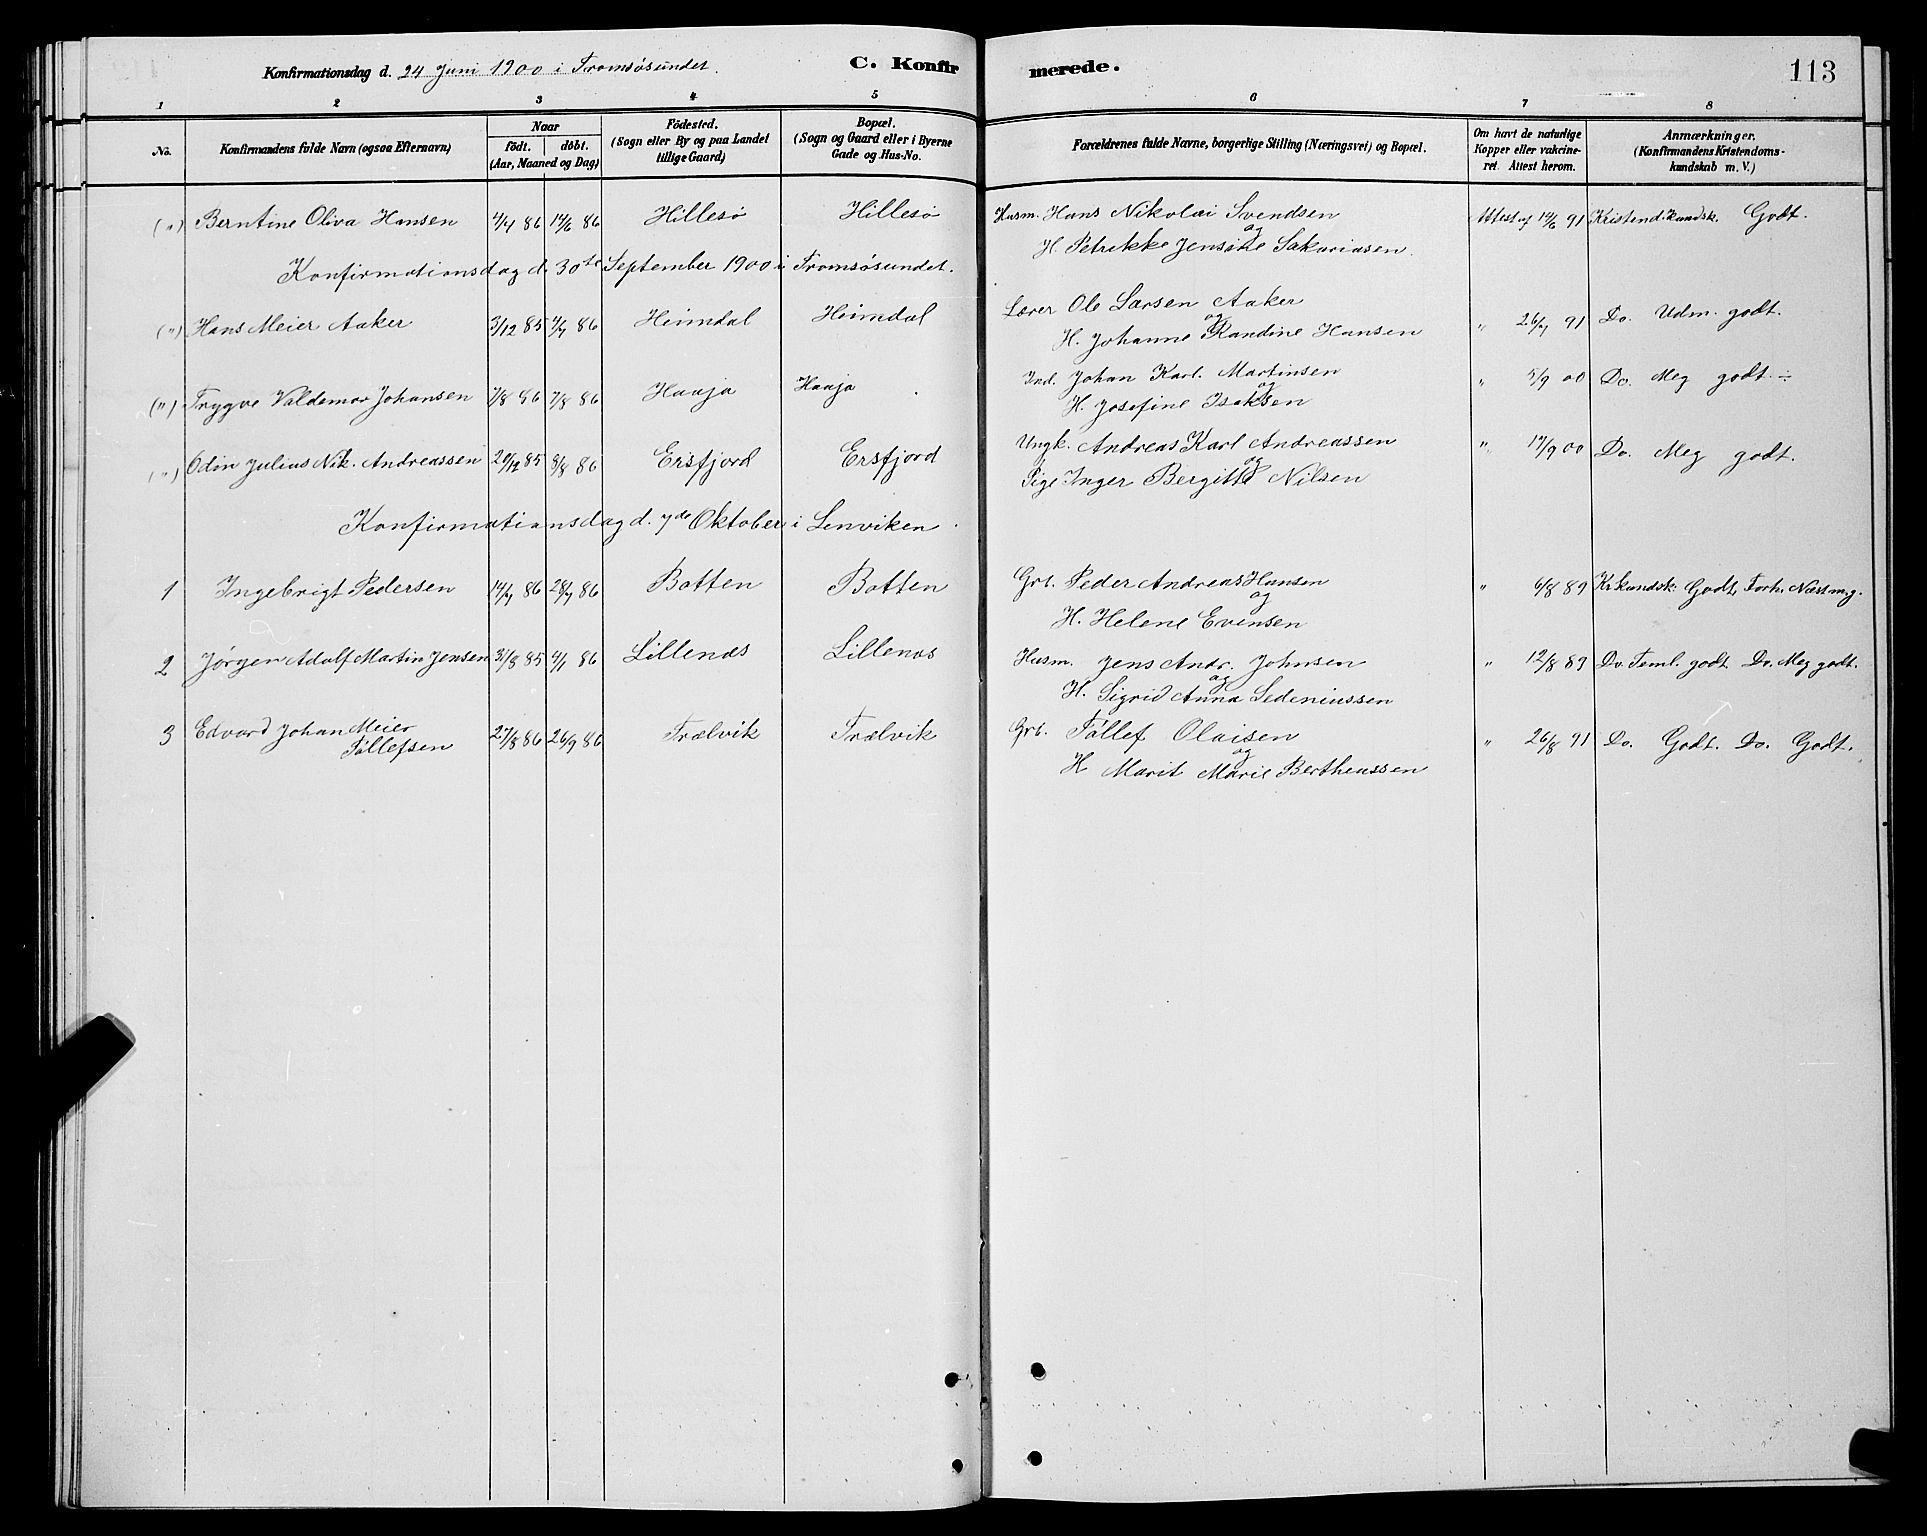 Konfirmationsdag d. 24 Juni 1900 i Tromsøsundet. C. Konfirmerede. 113
1 2 3 4 5 6 7 8
No. Konfirmandens fulde Navn (ogsaa Efternavn) Naar födt. döbt. (Aar, Maaned og Dag) Födested. (Sogn eller By og paa Landet tillige Gaard) Bopæl. (Sogn og Gaard eller i Byerne Gade og Hus-No. Forældrenes fulde Navne, borgerlige Stilling (Næringsvei) og Bopæl. Om havt de naturlige Kopper eller vakcineret. Attest herom. Anmærkninger. (Konfirmandens Kristendomskundskab m. V.)
(") Berntine Oliva Hansen 4/4 86 14/6 86 Hillesø Hillesø Husm. Hans Nikolai Svendsen Attest af 14/6 91 Kristend. kundsk. Godt.
og
H. Petrikke Jensine Sakariasen.
Konfirmationsdag d. 30te September 1900 i Tromsøsundet.
(") Hans Meier Aaker 3/12 85 4/7 86 Heimdal Heimdal Lærer Ole Larsen Aaker " 26/7 91 Do. Udm. godt.
og
H. Johanne Randine Hansen
(") Trygve Valdemar Johansen 7/8 86 7/8 86 Haaja Haaja Ind. Johan Karl. Martinsen " 5/9 00 Do. Meg godt ÷
og
H. Josefine Isaksen
(") Odin Julius Nik. Andreassen 29/12 85 8/8 86 Ersfjord Ersfjord Ungk. Andreas Karl Andreassen " 17/9 00 Do. Meg godt.
og
Pige Inger Bergitte Nilsen
Konfirmationsdag d. 7de Oktober i Lenviken.
1 Ingebrigt Pedersen 14/7 86 28/7 86 Botten Botten Grb. Peder Andreas Hansen " 6/8 89 Kr.kundsk: Godt, Forh. Næst m.g.
og
H. Helene Evensen
2 Jørgen Adolf Martin Jensen 31/8 85 4/1 86 Lillenæs Lillenæs Husm. Jens Andr. Johnsen " 12/8 89 Do. Teml. godt Do. Meg godt.
og
H. Sigrid Anna Sedeniussen
3 Edvard Johan Meier Tøllefsen 27/8 86 26/9 86 Trælvik Trælvik Grb. Tøllef Olaisen " 26/8 91 Do. Godt. Do. Godt.
og
H Marit Marie Bertheussen